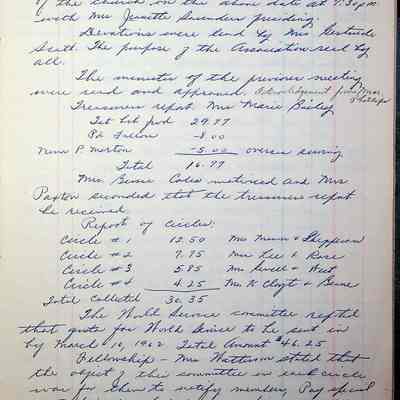 of the church on the above date at 7:30 p.m.
with Mrs Jenette Saunders presiding.
Devotions were lead by Mrs. Gertrude
Scott. The purpose of the Association read by
all.
The minutes of the previous meeting
were read and approved. Acknowledgement from Mrs. Phillips
Treasurers repot. Mrs Marie Bailey
29.77
Pd -8.00
P. Morton -5.00 oversea sewing
Total 16.77
Mrs. Bessie Coles motioned and Mrs
Paxton seconded that the treasurers repot
be received.
Report of Circles:
Circle # 1 12.50 Mrs &
Circle # 2 7.75 Mrs Lee & Rose
Circle # 3 5.85 Mrs Sewell & West
Circle # 4 4.25 Mrs &
Total Collected 30.35
The World Service committee reptd
that quota for World Service to be sent in
by March 10, 1962 Total Amount $46.25
Fellowship - Mrs Watterson stated that
the object of the committee in each circle
was for them to notify members, Pay special